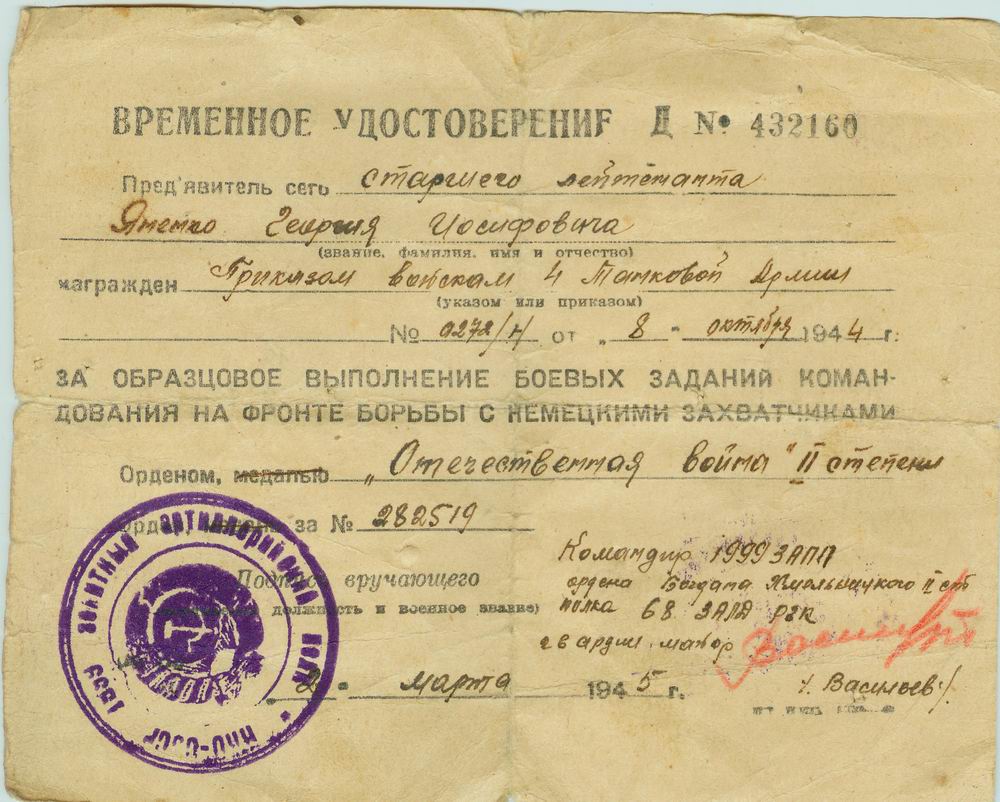 ВРЕМЕННОЕ УДОСТОВЕРЕНИЕ Д № 432160
Пред'явитель сего старшего лейтенанта
Яненко Георгия Иосифовича
(звание, фамилия, имя и отчество)
награжден Приказом войскам 4 Танковой Армии
(указом или приказом)
№ 0272/н от „8" октября 1944 г.
ЗА ОБРАЗЦОВОЕ ВЫПОЛНЕНИЕ БОЕВЫХ ЗАДАНИЙ КОМАН-
ДОВАНИЯ НА ФРОНТЕ БОРЬБЫ С НЕМЕЦКИМИ ЗАХВАТЧИКАМИ
Орденом, медалью „Отечественная война" II степени
орде за № 282519
Командир 1999 ЗАПП
Подпись вручающего
ордена Богдана Хмельницкого II ст
должность и военное звание)
полка 68 ЗАД РГК
гвардии майор
2 " марта 1945 г.
/. Васильев/
Зенитный артиллерийский полк
1999
НКО-СССР